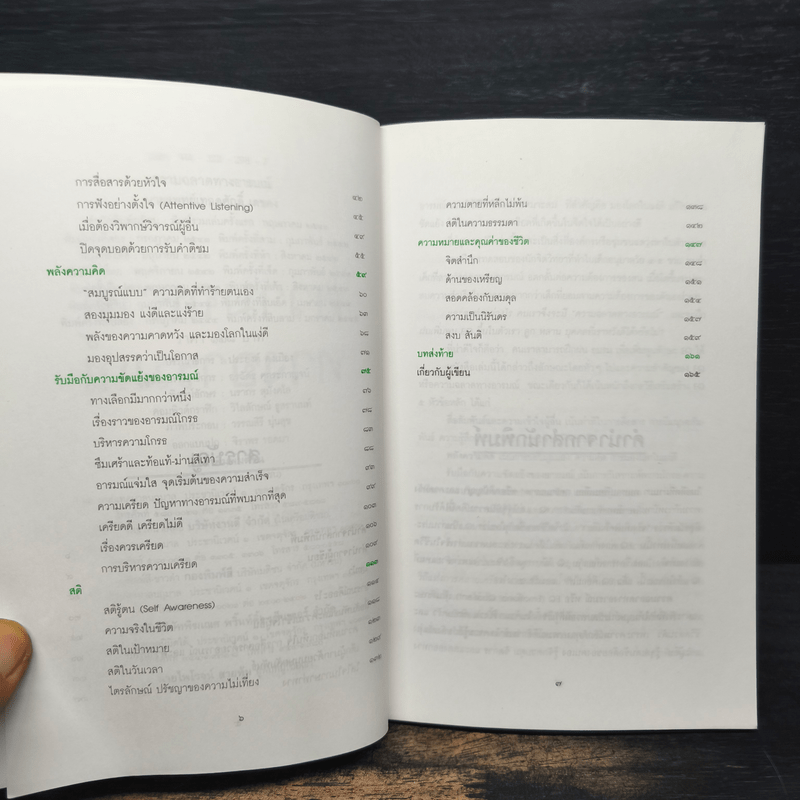 การสื่อสารด้วยหัวใจ ๔๒
การฟังอย่างตั้งใจ (Attentive Listening) ๔๕
เมื่อต้องวิพากษ์วิจารณ์ผู้อื่น ๔๙
ปิดจุดบอดด้วยการรับคำติชม ๕๕
พลังความคิด ๕๙
“สมบูรณ์แบบ” ความคิดที่ทำร้ายตนเอง ๖๐
สองมุมมอง แง่ดีและแง่ร้าย ๖๓
พลังของความคาดหวัง และมองโลกในแง่ดี ๖๘
มองอุปสรรคว่าเป็นโอกาส ๗๑
รับมือกับความขัดแย้งของอารมณ์ ๗๕
ทางเลือกมีมากกว่าหนึ่ง ๗๖
เรื่องราวของอารมณ์โกรธ ๗๘
บริหารความโกรธ ๘๓
ซึมเศร้าและท้อแท้-ม่านสีเทา ๘๘
อารมณ์แจ่มใส จุดเริ่มต้นของความสำเร็จ ๙๖
ความเครียด ปัญหาทางอารมณ์ที่พบมากที่สุด ๙๙
เครียดดี เครียดไม่ดี ๑๐๓
เรื่องควรเครียด ๑๐๖
การบริหารความเครียด ๑๐๙
สติ ๑๑๓
สติรู้ตน (Self Awareness) ๑๑๔
ความจริงในชีวิต ๑๑๘
สติในเป้าหมาย ๑๒๓
สติในวันเวลา ๑๒๘
ไตรลักษณ์ ปรัชญาของความไม่เที่ยง ๑๓๒
๖
ความตายที่หลีกไม่พ้น ๑๓๘
สติในความธรรมดา ๑๔๒
ความหมายและคุณค่าของชีวิต ๑๔๗
จิตสำนึก ๑๔๘
ด้านของเหรียญ ๑๕๑
สอดคล้องกับสมดุล ๑๕๔
ความเป็นนิรันดร ๑๕๗
สงบ สันติ ๑๕๙
บทส่งท้าย ๑๖๑
เกี่ยวกับผู้เขียน ๑๖๕
๗